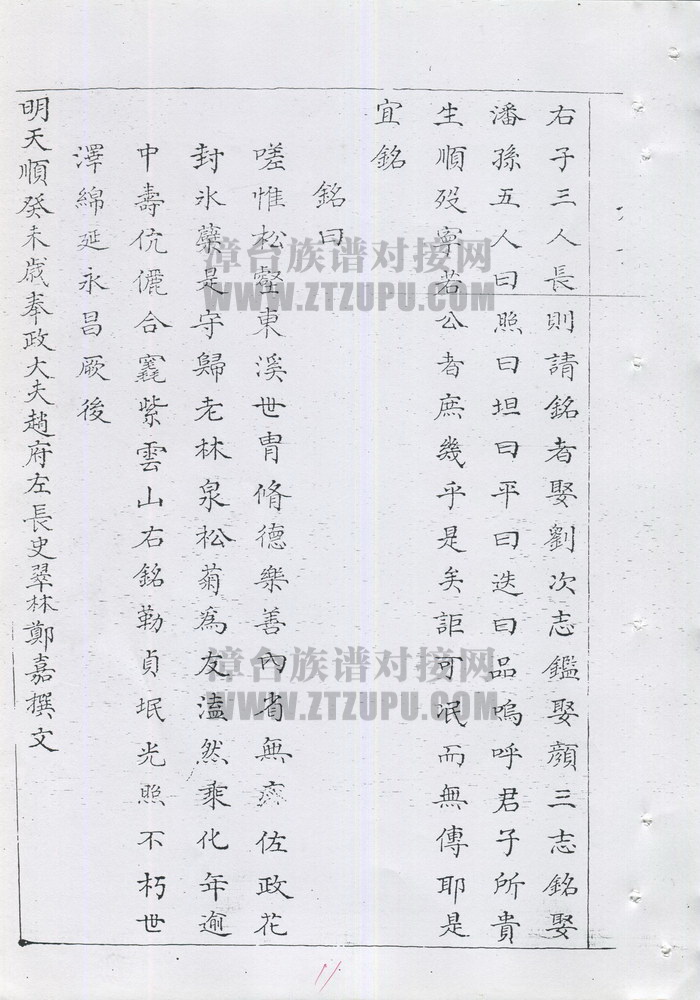 右子三人長則請銘者娶劉次志鑑娶顏三志銘娶
潘孫五人曰照曰坦曰平曰迭曰品嗚呼君子所貴
生順歿寧若公者庶幾乎是矣詎可泯而無傳耶是
宜銘
銘曰
嗟惟松壑東溪世胄脩德樂善內省無疚佐政花
封氷蘗是守歸老林泉松菊為友溘然乘化年逾
中壽伉儷合窆紫雲山右銘勒貞珉光照不朽世
澤綿延永昌厥後
明天順癸未歲奉政大夫趙府左長史翠林鄭嘉撰文
漳台族谱对接网
WWW.ZTZUPU.COM
漳台族谱对接网
WWW.ZTZUPU.COM
11